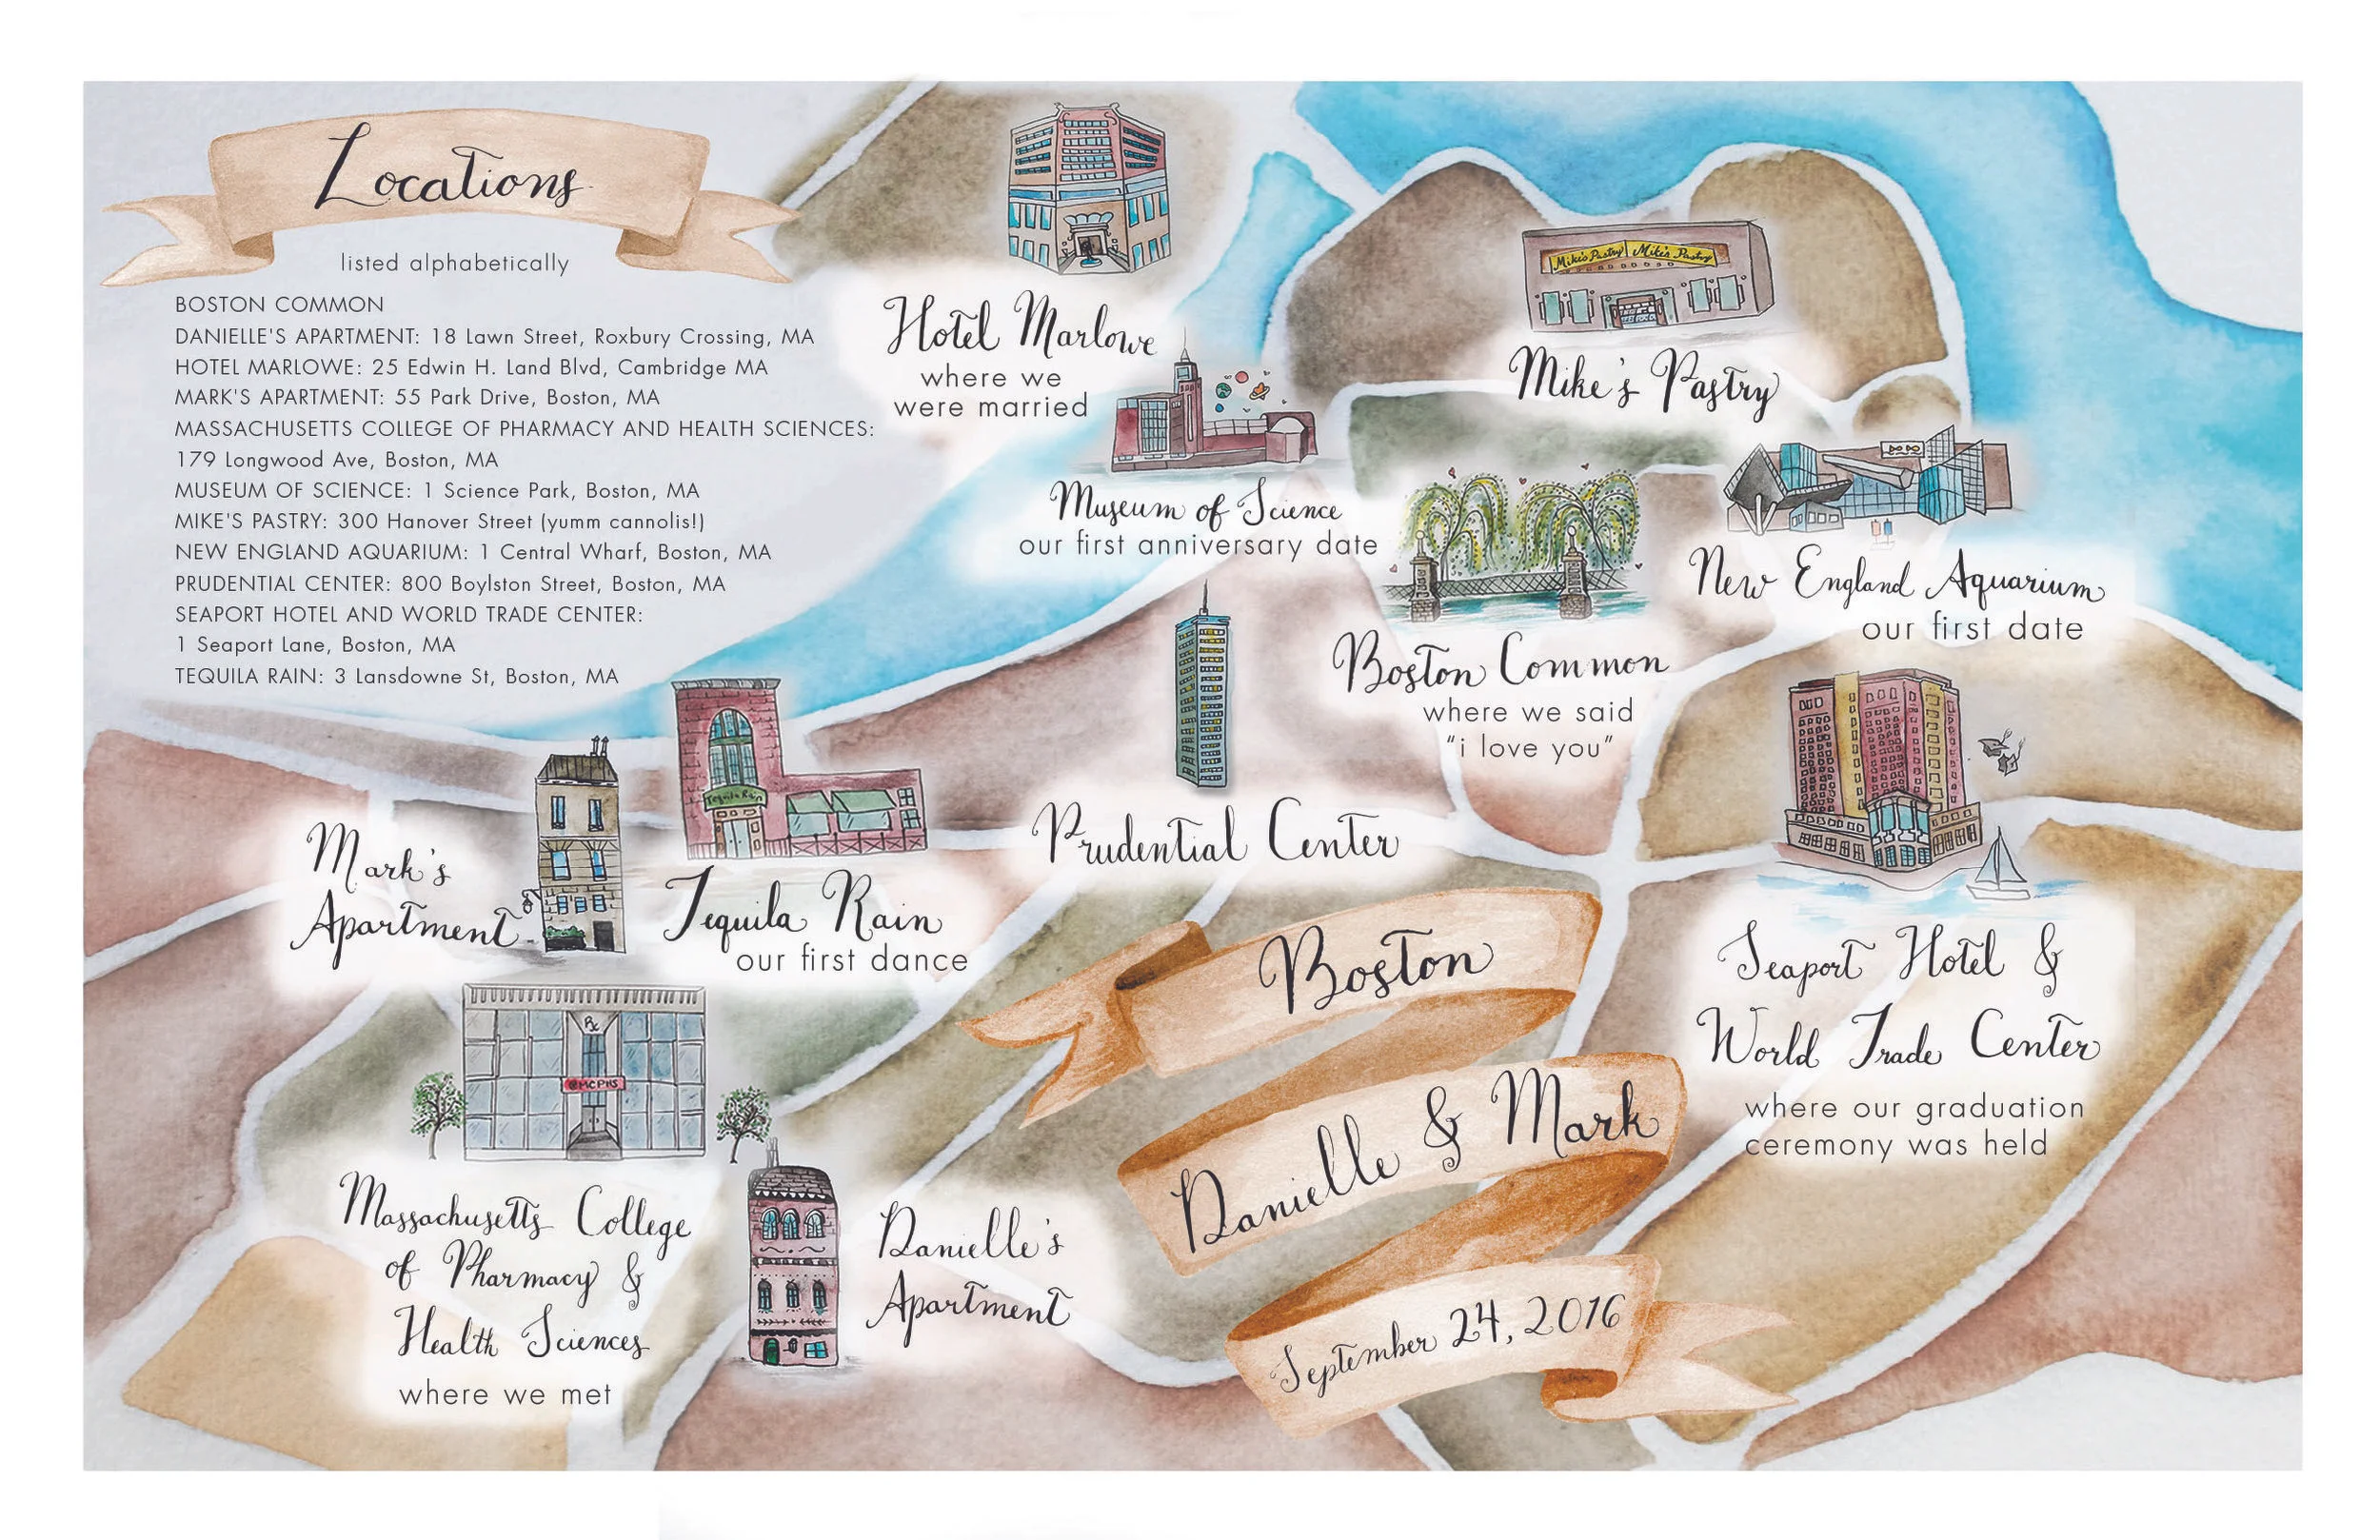 Locations
listed alphabetically
BOSTON COMMON
DANIELLE'S APARTMENT: 18 Lawn Street, Roxbury Crossing, MA
HOTEL MARLOWE: 25 Edwin H. Land Blvd, Cambridge MA
MARK'S APARTMENT: 55 Park Drive, Boston, MA
MASSACHUSETTS COLLEGE OF PHARMACY AND HEALTH SCIENCES:
179 Longwood Ave, Boston, MA
MUSEUM OF SCIENCE: 1 Science Park, Boston, MA
MIKE'S PASTRY: 300 Hanover Street (yumm cannolis!)
NEW ENGLAND AQUARIUM: 1 Central Wharf, Boston, MA
PRUDENTIAL CENTER: 800 Boylston Street, Boston, MA
SEAPORT HOTEL AND WORLD TRADE CENTER:
1 Seaport Lane, Boston, MA
TEQUILA RAIN: 3 Lansdowne St, Boston, MA
Hotel Marlowe
where we
were married
Mike's Pastry Mike's Pastry
Mike's Pastry
Museum of Science
our first anniversary date
New England Aquarium
our first date
Boston Common
where we said
"i love you"
Prudential Center
Mark's
Apartment
Tequila Rain
Tequila Rain
our first dance
Seaport Hotel &
World Trade Center
where our graduation
ceremony was held
Rx
@MCPHS
Massachusetts College
of Pharmacy &
Health Sciences
where we met
Danielle's
Apartment
Boston
Danielle & Mark
September 24, 2016